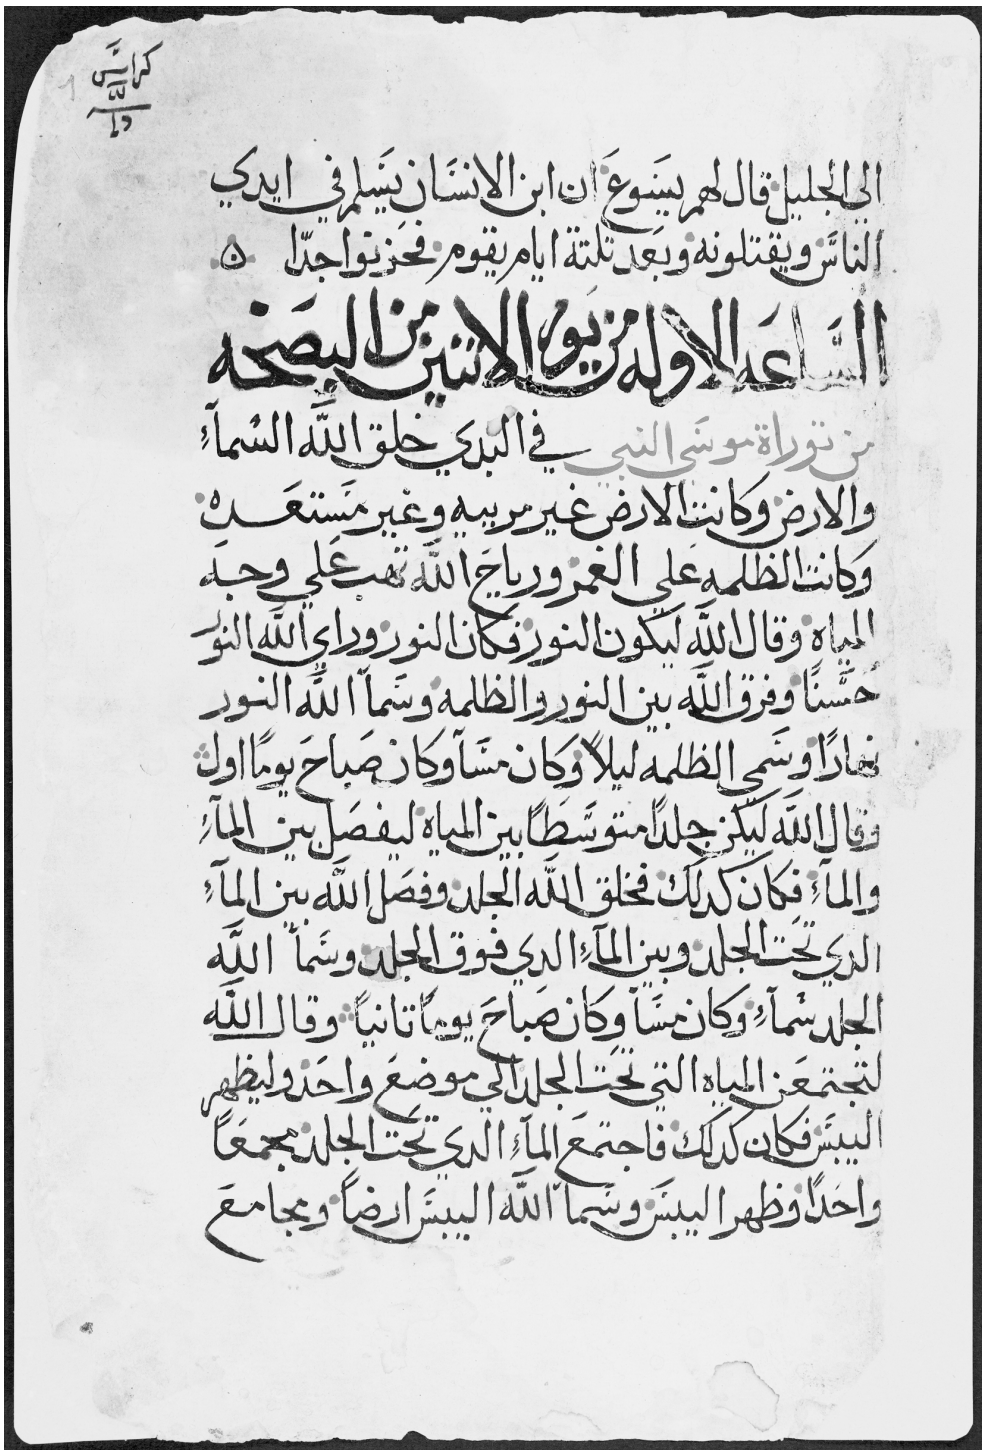 كراس
الى الجليل قال لهم يسوع ان ابن الانسان يسلم في ايدي
الناس ويقتلونه وبعد تلتة ايام يقوم فحزنوا جدّا ۞
الساعه الاوله من يوم الاتنين من البصخه
من توراة موسى النبي في البدي خلق الله السمآء
والارض وكانت الارض غير مربيه وغير مستعده
وكانت الظلمه علي الغمر ورياح الله تهب علي وجه
المياه وقال الله ليكون النور فكان النور وراي الله النور
حسنًا وفرق الله بين النور والظلمه وسمآ الله النور
نهارًا وسمي الظلمه ليلاً وكان مسآ وكان صباح يومًا اول
وقال الله ليكن جلدًا متوسطًا بين المياه ليفصل بين المآء
والمآء فكان كدلك فخلق الله الجلد وفصل الله بين المآء
الدي تحت الجلد وبين المآء الدي فوق الجلد وسمآ الله
الجلد سمآء وكان مسآ وكان صباح يومًا تانيًا وقال الله
لتجتمعن المياه التي تحت الجلد الي موضع واحد وليظهر
اليبس فكان كدلك فاجتمع المآء الدي تحت الجلد مجمعًا
واحدًا وظهر اليبس وسمآ الله اليبس ارضًا ومجامع